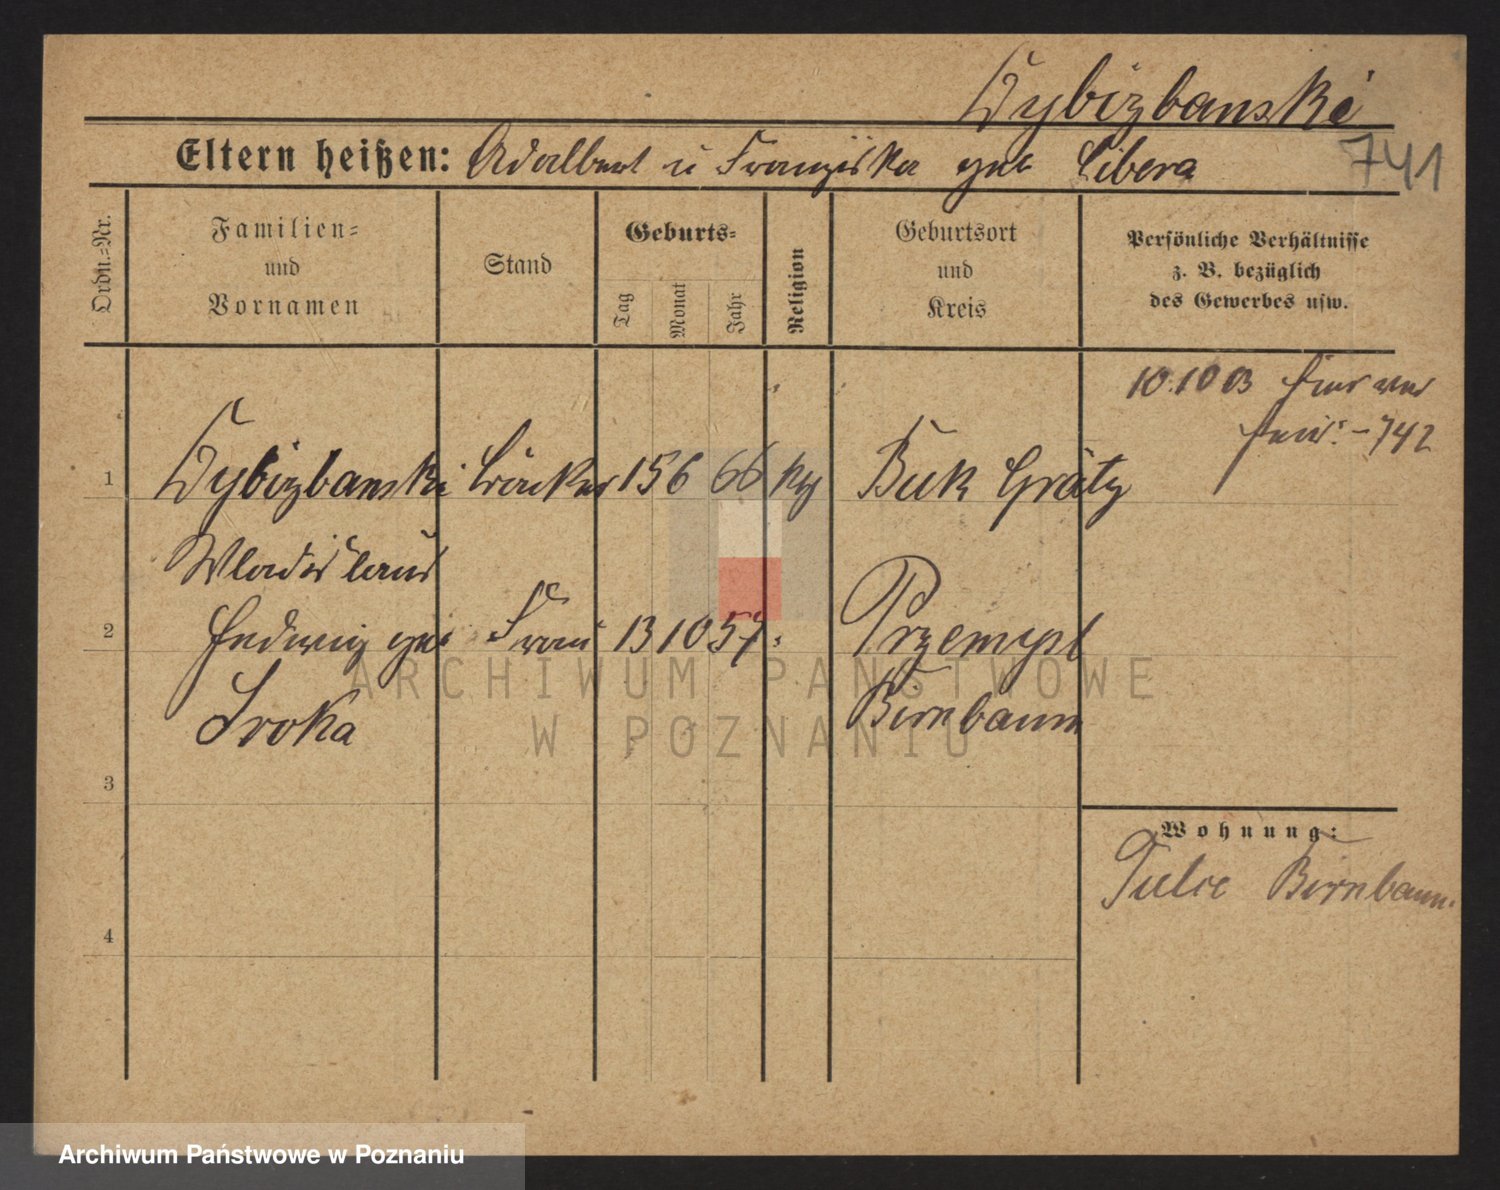 Dybizbanski
Eltern heißen: Adalbert u Franziska geb Libera
741
Ordn.-Nr.
Familien-
und
Vornamen
Stand
Geburts-
Tag
Monat
Jahr
Religion
Geburtsort
und
Kreis
Persönliche Verhältnisse
z. B. bezüglich
des Gewerbes usw.
10.10 03
- 742
1 Dybizbanski 15 6 66 Buk Grätz
Wladislaus
2 Hedwig geb Frau 13 10 57 Przemysl
Sroka Birnbaum
3
Wohnung:
Tulce Birnbaum.
4
ARCHIWUM PAŃSTWOWE
W POZNANIU
Archiwum Państwowe w Poznaniu